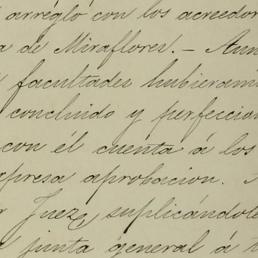 arregló con los acreedor
a de Miraflores.— Aun
facultades hubieram
concluido y perfeccion
con él cuenta á los
presa aprobacion.
r Juez, suplicándole
a junta general á